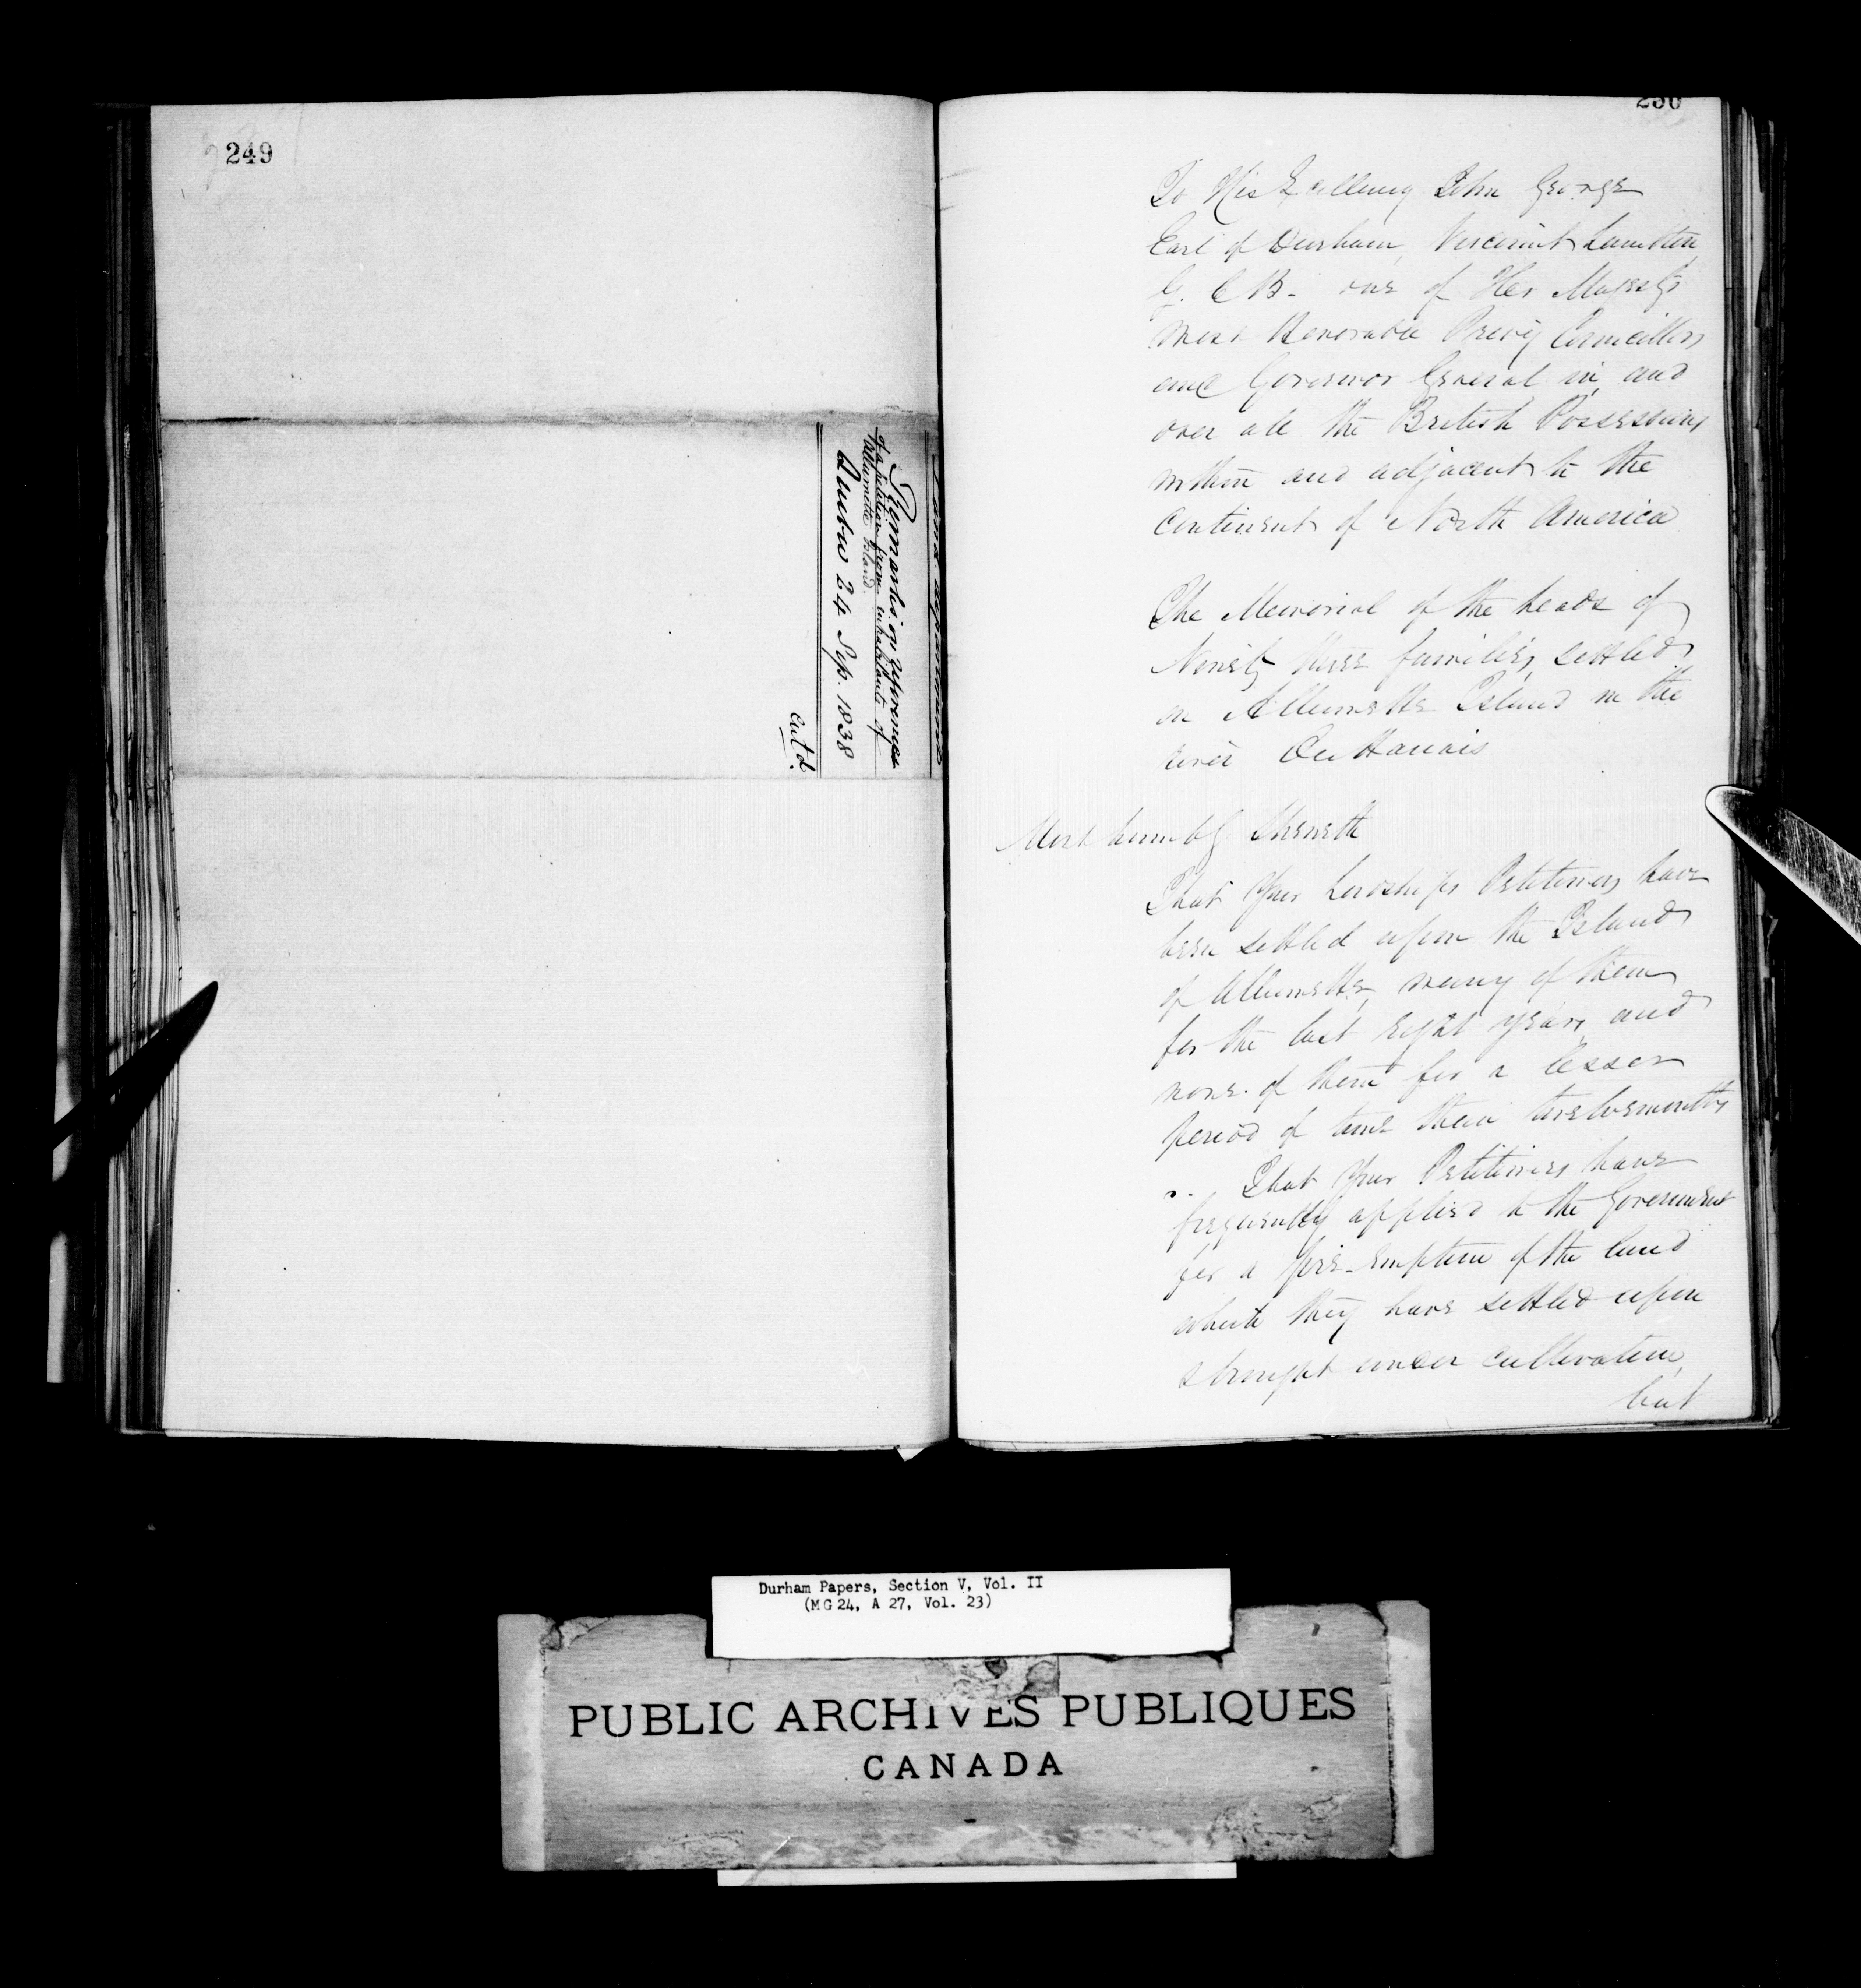 249
Land department
Remarks on reference
of a petition from inhabitants of
Allumette Island.
Quebec 24 Sep. 1838
Ent'd.
250
To His Excellency John George
Earl of Durham, Viscount Lambton,
G. C B - one of Her Majesty's
most Honorable Privy Councillors
and Governor General in, and
over all the British Possessions
within and adjacent to the
Continent of North America
The Memorial of the heads of
Ninety three families, settled
on Allumette Island in the
river Outtaouais
Most humbly Sheweth
That Your Lordship's Petitioners have
been settled upon the Island
of Allumette, many of them
for the last eight years, and
none of them for a lesser
period of time than twelvemonths
That Your Petitioners have
frequently applied to the Government
for a pre-emption of the land
which they have settled upon
& brought under cultivation,
but
Durham Papers, Section V, Vol. II
(MG 24, A 27, Vol. 23)
PUBLIC ARCHIVES PUBLIQUES
CANADA